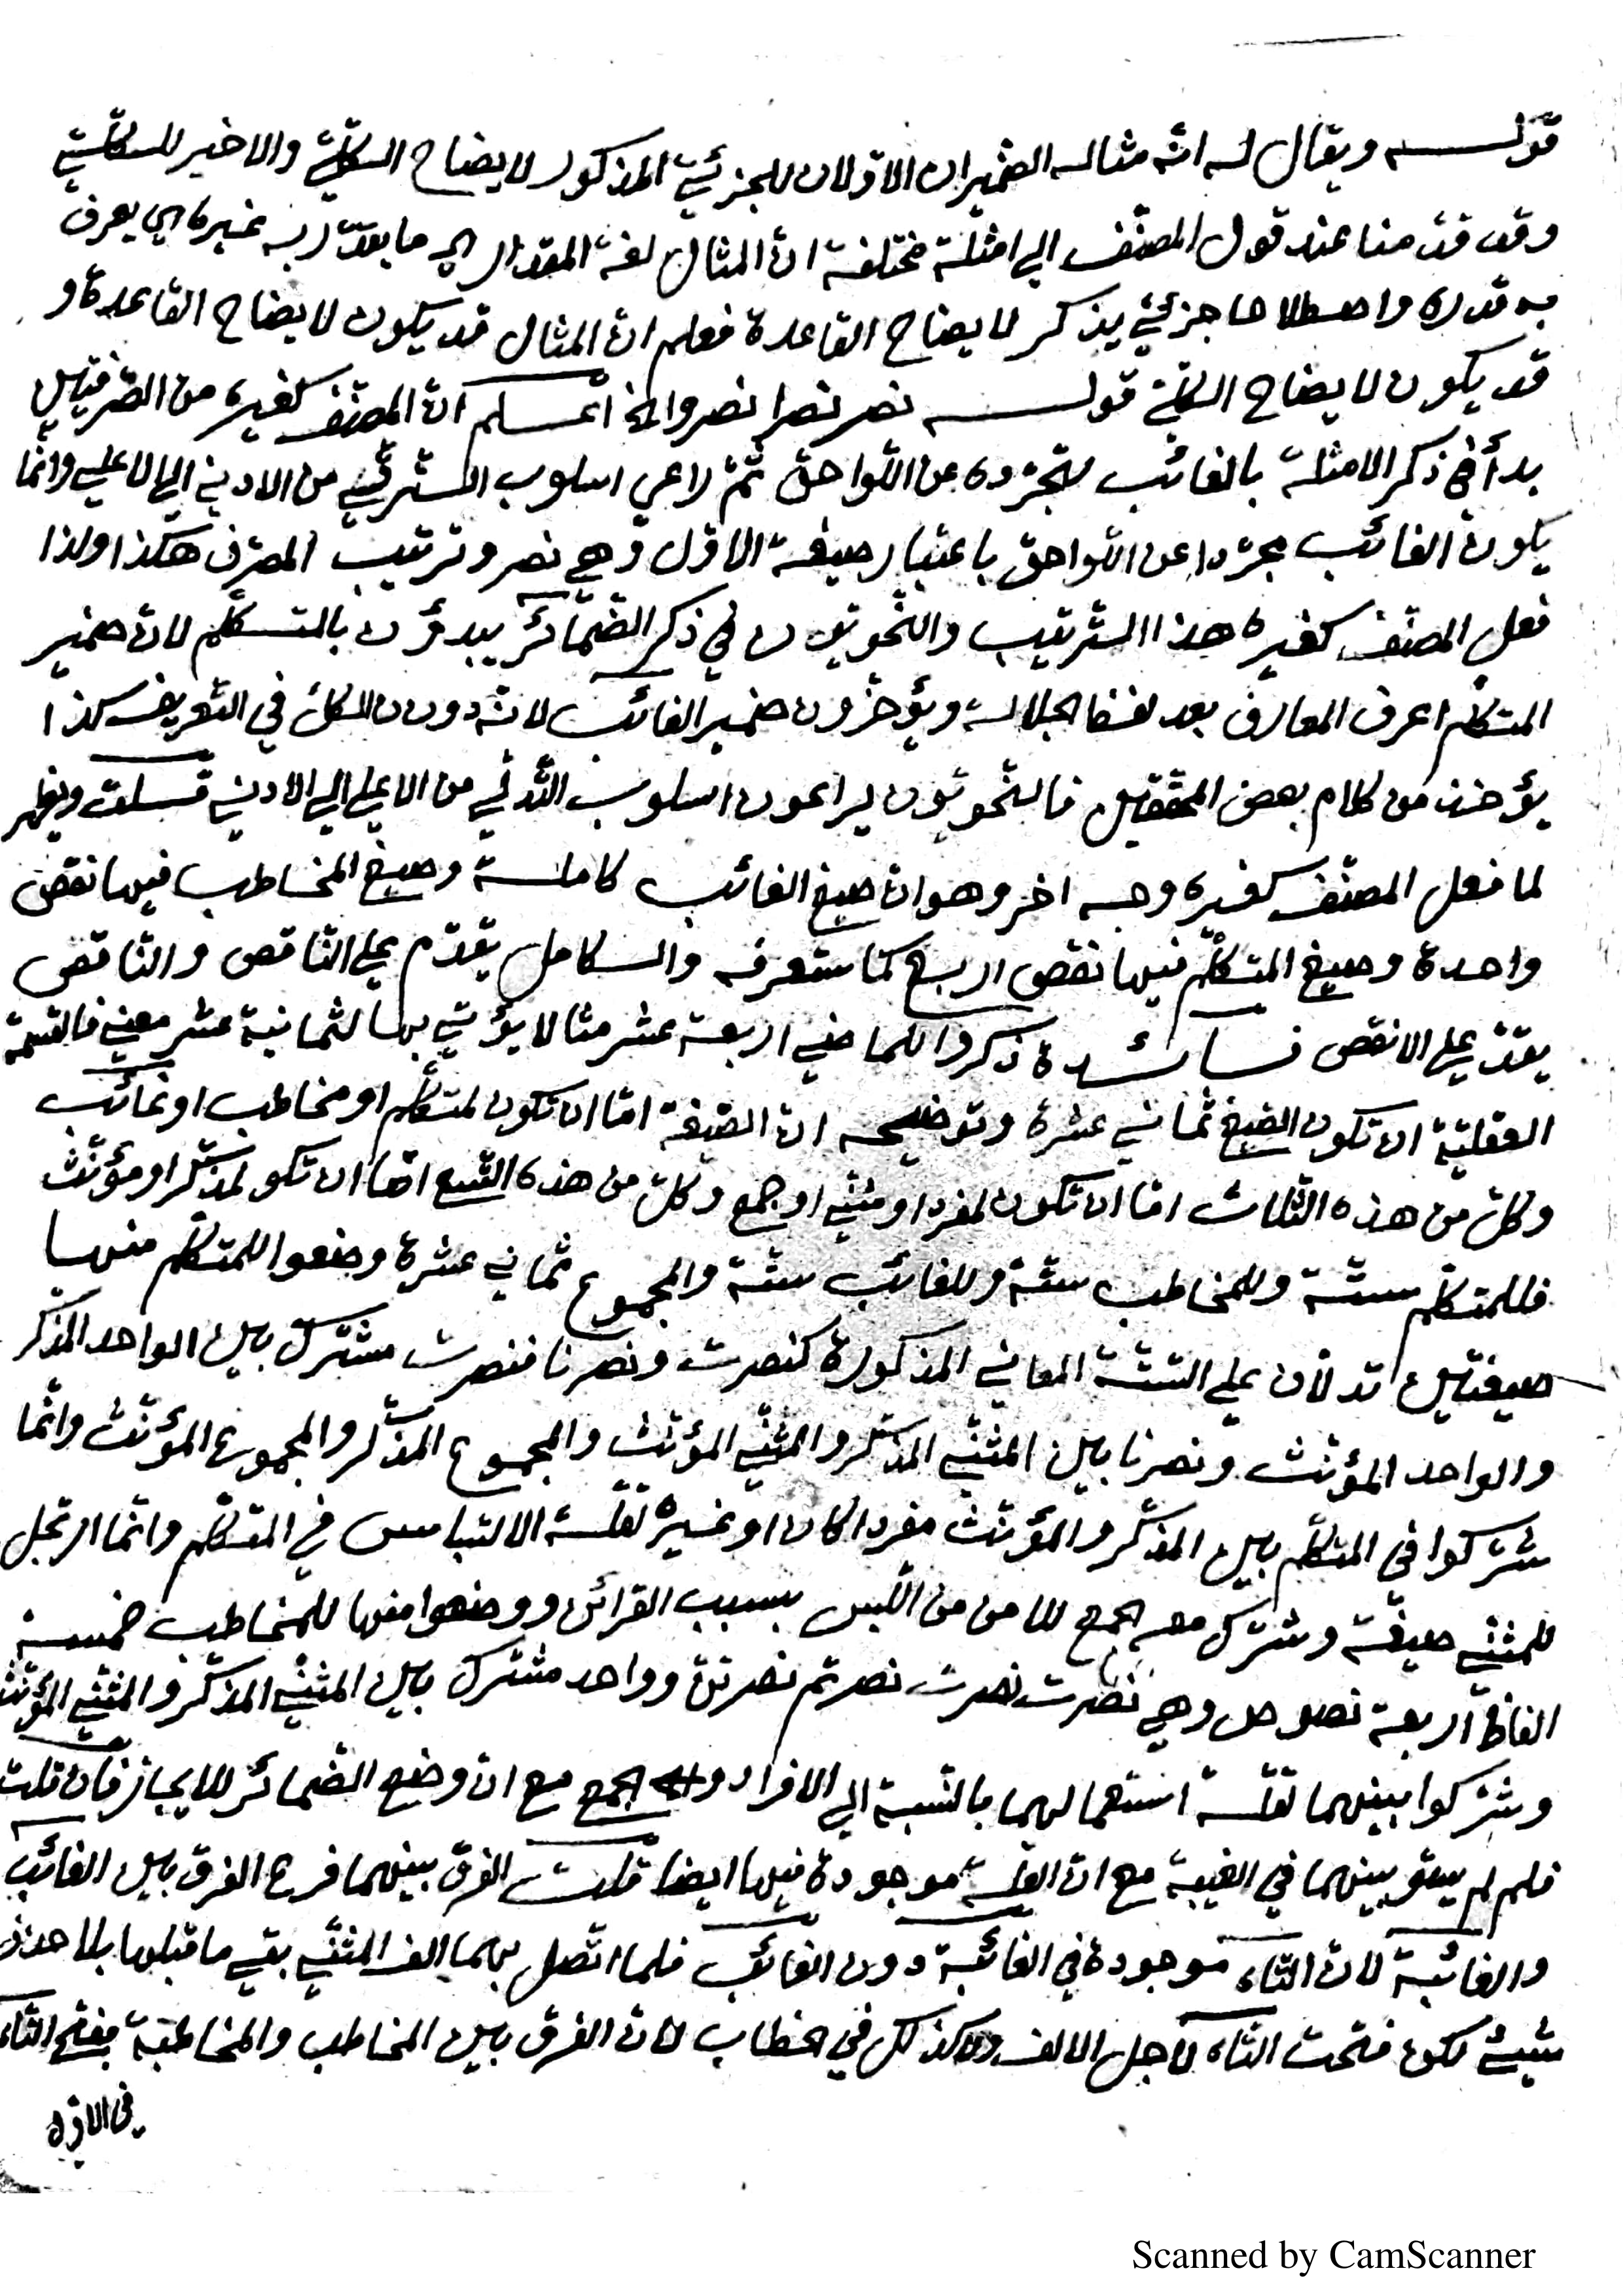 قولــه ويقال له انه مثاله الضميران الاولان للجزئي المذكور لايضاح الكلّيّة والاخير للكلّيّة
وقد قدّمنا عند قول المصنّف الي امثلة مختلفة انّ المثال لغة المقدار اي ما يقدّر به غيره اي يعرف
به قدره واصطلاحا جزئيّ يذكر لايضاح القاعدة فعلم انّ المثال قد يكون لايضاح القاعدة و
قد يكون لايضاح الكلّيّة قولــه نصر نصرا نصروا الخ اعــلم انّ المصنّف كغيره من الصرفيّين
بدأ في ذكر الامثلة بالغائب لتجرّده عن اللّواحق ثمّ راعي اسلوب الترقّي من الادني الي الاعلي وانّما
يكون الغائب مجرّدا عن اللّواحق باعتبار صيغته الاولي وهي نصر وترتيب المصرف هكذا ولذا
فعل المصنّف كغيره هذا الترتيب والنّحويّون في ذكر الضّمائر يبدؤن بالمتكلّم لانّ ضمير
المتكلّم اعرف المعارف بعد لفظ الجلالة ويؤخّرون ضمير الغائب لانّه دون الكلّ في التّعريف كذا
يؤخذ من كلام بعض المحقّقين فالنّحويّون يراعون اسلوب التّدلّي من الاعلي الي الادني قــلت ويظهر
لما فعل المصنّف كغيره وجه اخر وهو انّ صيغ الغائب كاملة وصيغ المخاطب فيها نقص
واحدة وصيغ المتكلّم فيها نقص اربع كما ستعرفه والكامل يقدّم علي النّاقص والنّاقص
يقدّم علي الانقص فــائــدة ذكروا للماضي اربعة عشر مثالا يؤتي بها لثمانية عشر معني فالقسمة
العقليّة ان تكون الصّيغ ثماني عشرة وتوضيحه انّ الصّيغة امّا ان تكون لمتكلّم او مخاطب او غائب
وكلّ من هذه الثّلاث امّا ان تكون لمفرد او مثنّي او جمع وكلّ من هذه التّسع امّا ان تكون لمذكّر او مؤنّث
فللمتكلّم ستّة وللمخاطب ستّة وللغائب ستّة والمجموع ثماني عشرة وضعوا للمتكلّم منها
صيغتين تدلّان علي السّتّة المعاني المذكورة كنصرت ونصرنا فنصرت مشترك بين الواحد المذكّر
والواحد المؤنّث ونصرنا بين المثنّي المذكّر والمثنّي المؤنّث والمجموع المذكّر والمجموع المؤنّث وانّما
شرّكوا في المتكلّم بين المذكّر والمؤنّث مفردا كان او غيره لقلّة الالتباس في المتكلّم وانّما ارتجل
للمثنّي صيغة وشرّك معه الجمع للامن من اللّبس بسبب القرائن ووضعوا منها للمخاطب خمسة
الفاظ اربعة نصوص وهي نصرت نصرت نصرتم نصرتنّ وواحد مشترك بين المثنّي المذكّر والمثنّي المؤنّث
وشرّكوا بينهما لقلّة استعمالهما بالنّسبة الي الافراد والجمع مع انّ وضع الضّمائر للايجاز فان قلت
فلم لم يسوّ بينهما في الغيبة مع انّ القلّة موجودة فيها ايضا قلت الفرق بينهما فرع الفرق بين الغائب
والغائبة لانّ التّاء موجودة في الغائبة دون الغائب فلما اتّصل بهما الف المثنّي بقي ما قبلها بلا حذف
شيئ لكن فتحت التّاء لاجل الالف ولا كذلك في الخطاب لانّ الفرق بين المخاطب والمخاطبة بفتح التّاء
في الاوّل
Scanned by CamScanner